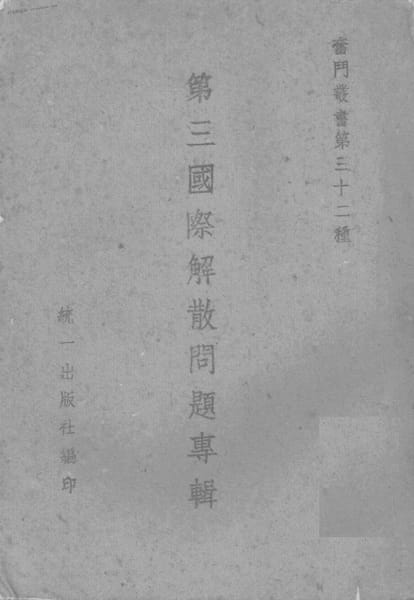 奮鬥叢書第三十二種
第三國際解散問題專輯
統一出版社編印